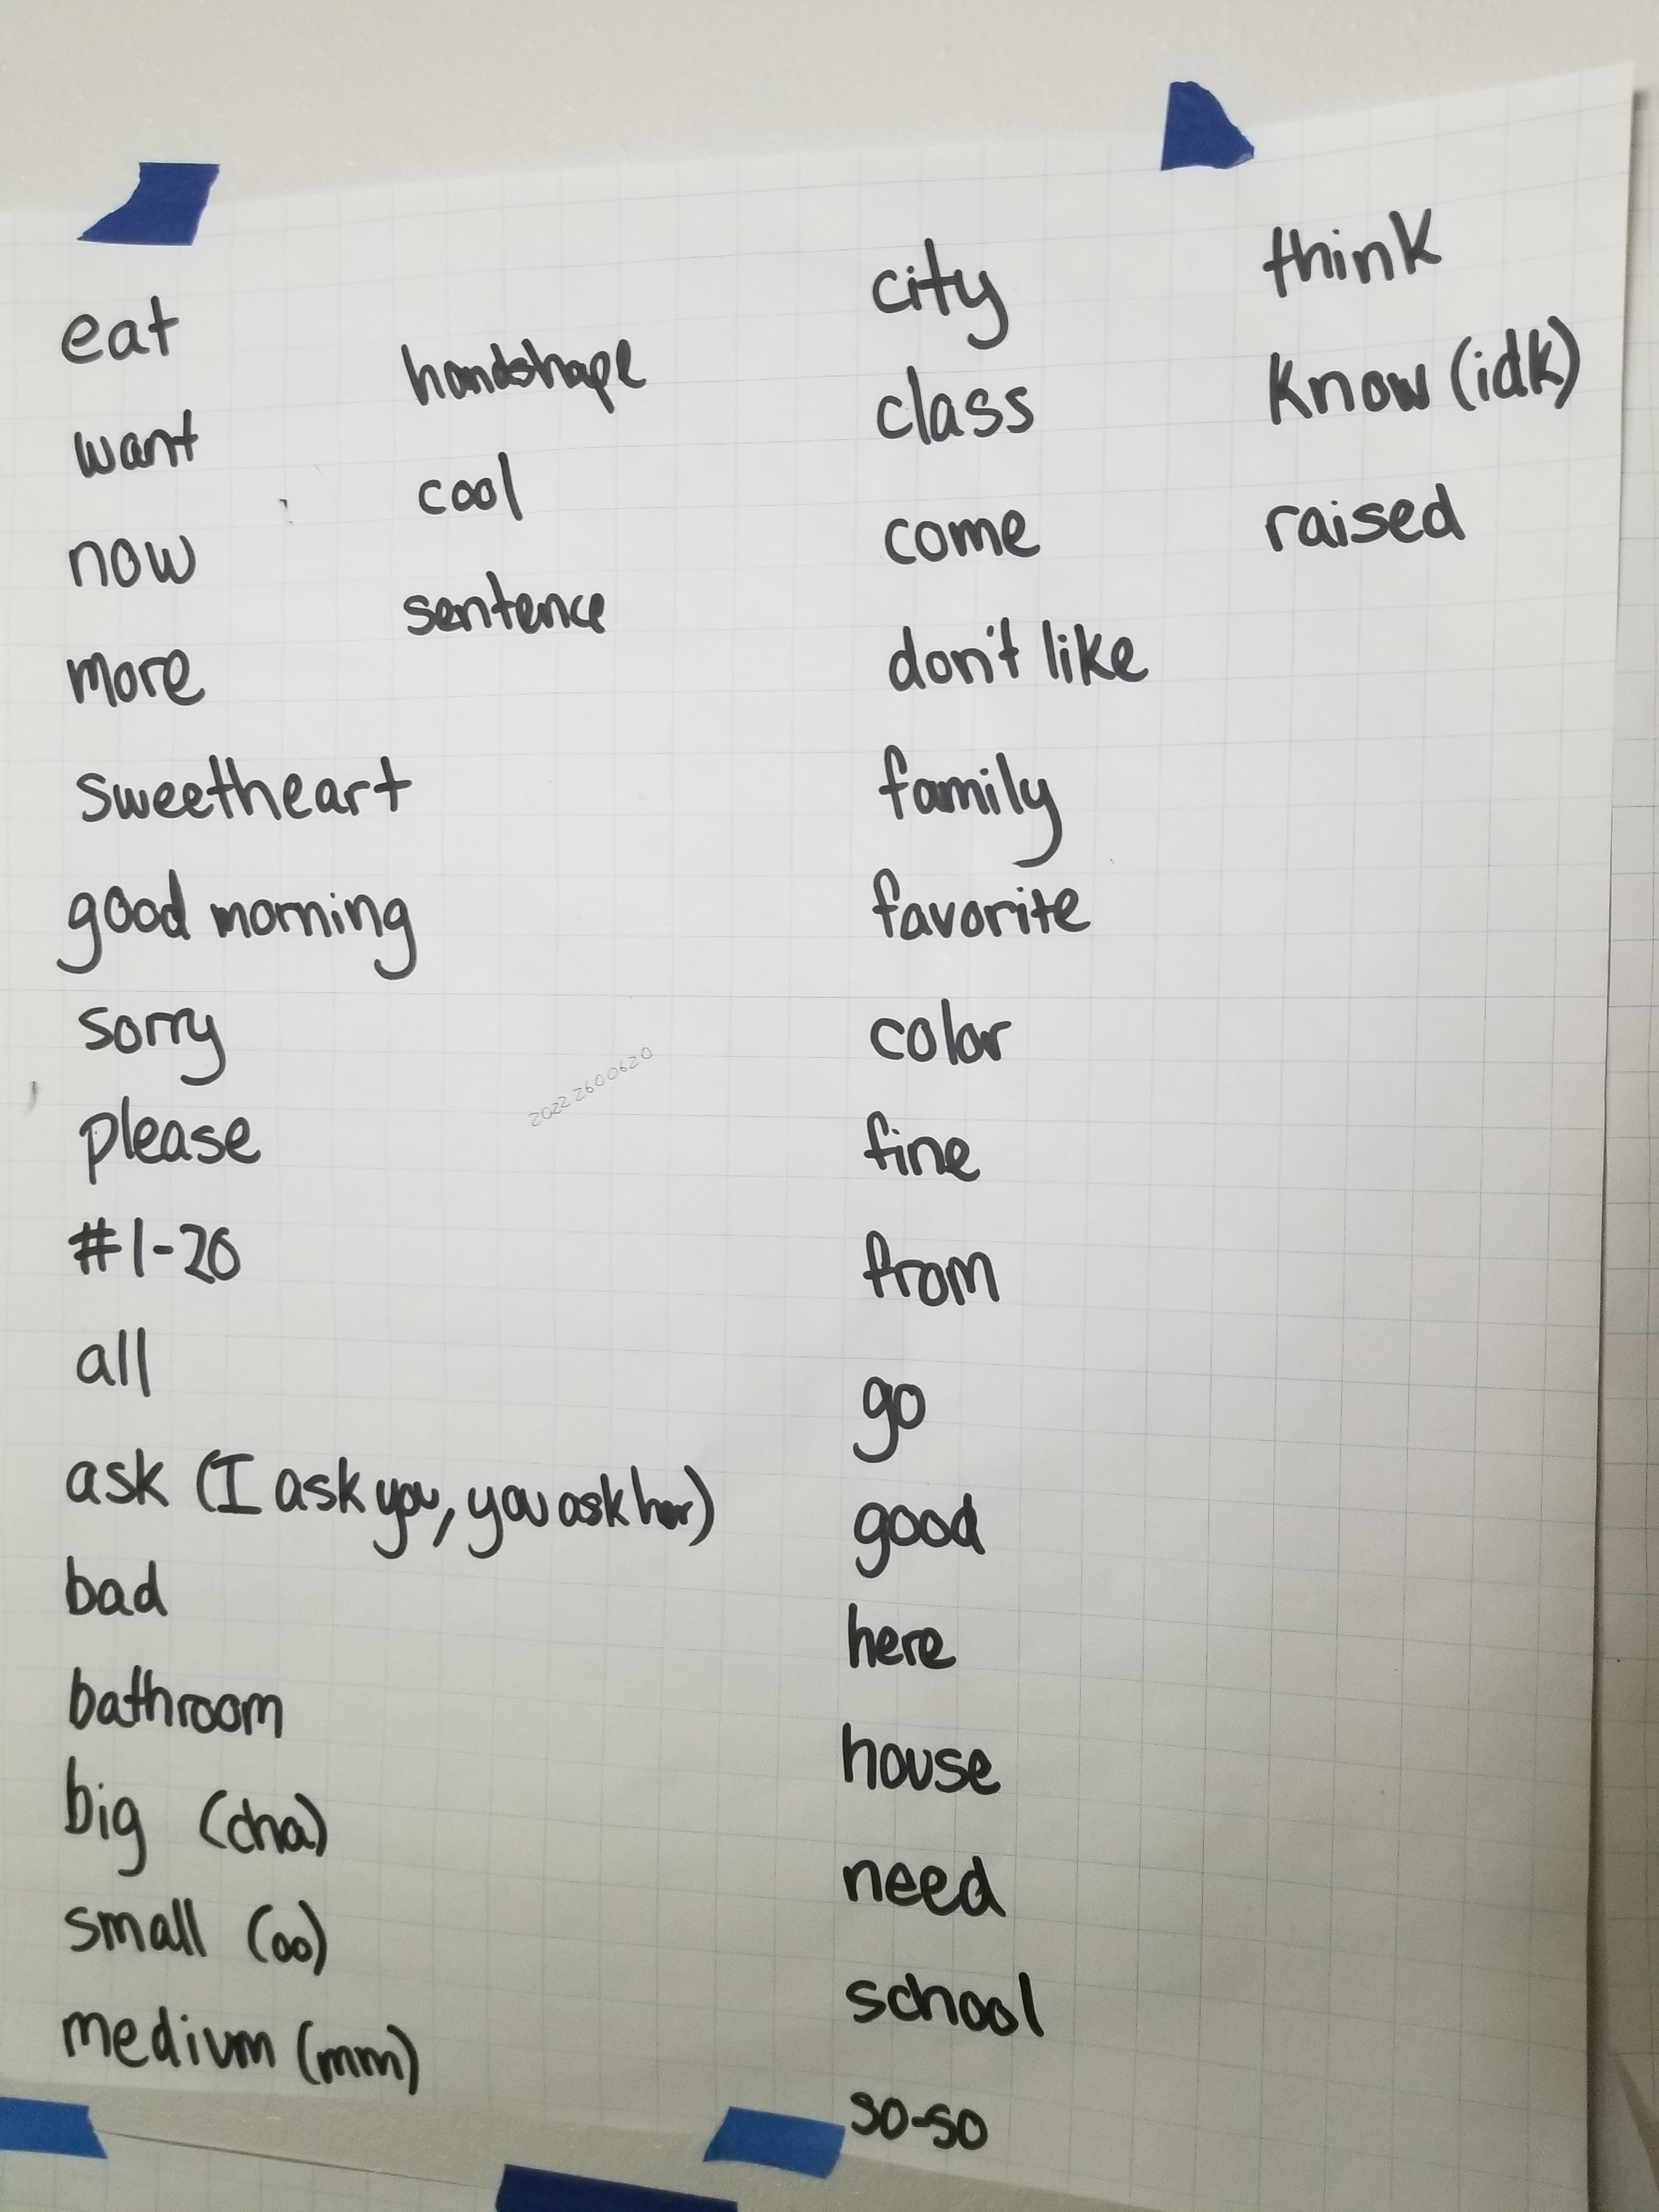 eat
want
now
more
sweetheart
good morning
sorry
please
#1-20
all
ask (I ask you, you ask her)
bad
bathroom
big (cha)
small (oo)
medium (mm)
handshape
cool
sentence
2022 2600620
city
class
come
don't like
family
favorite
color
fine
from
go
good
here
house
need
school
so-so
think
know (idk)
raised